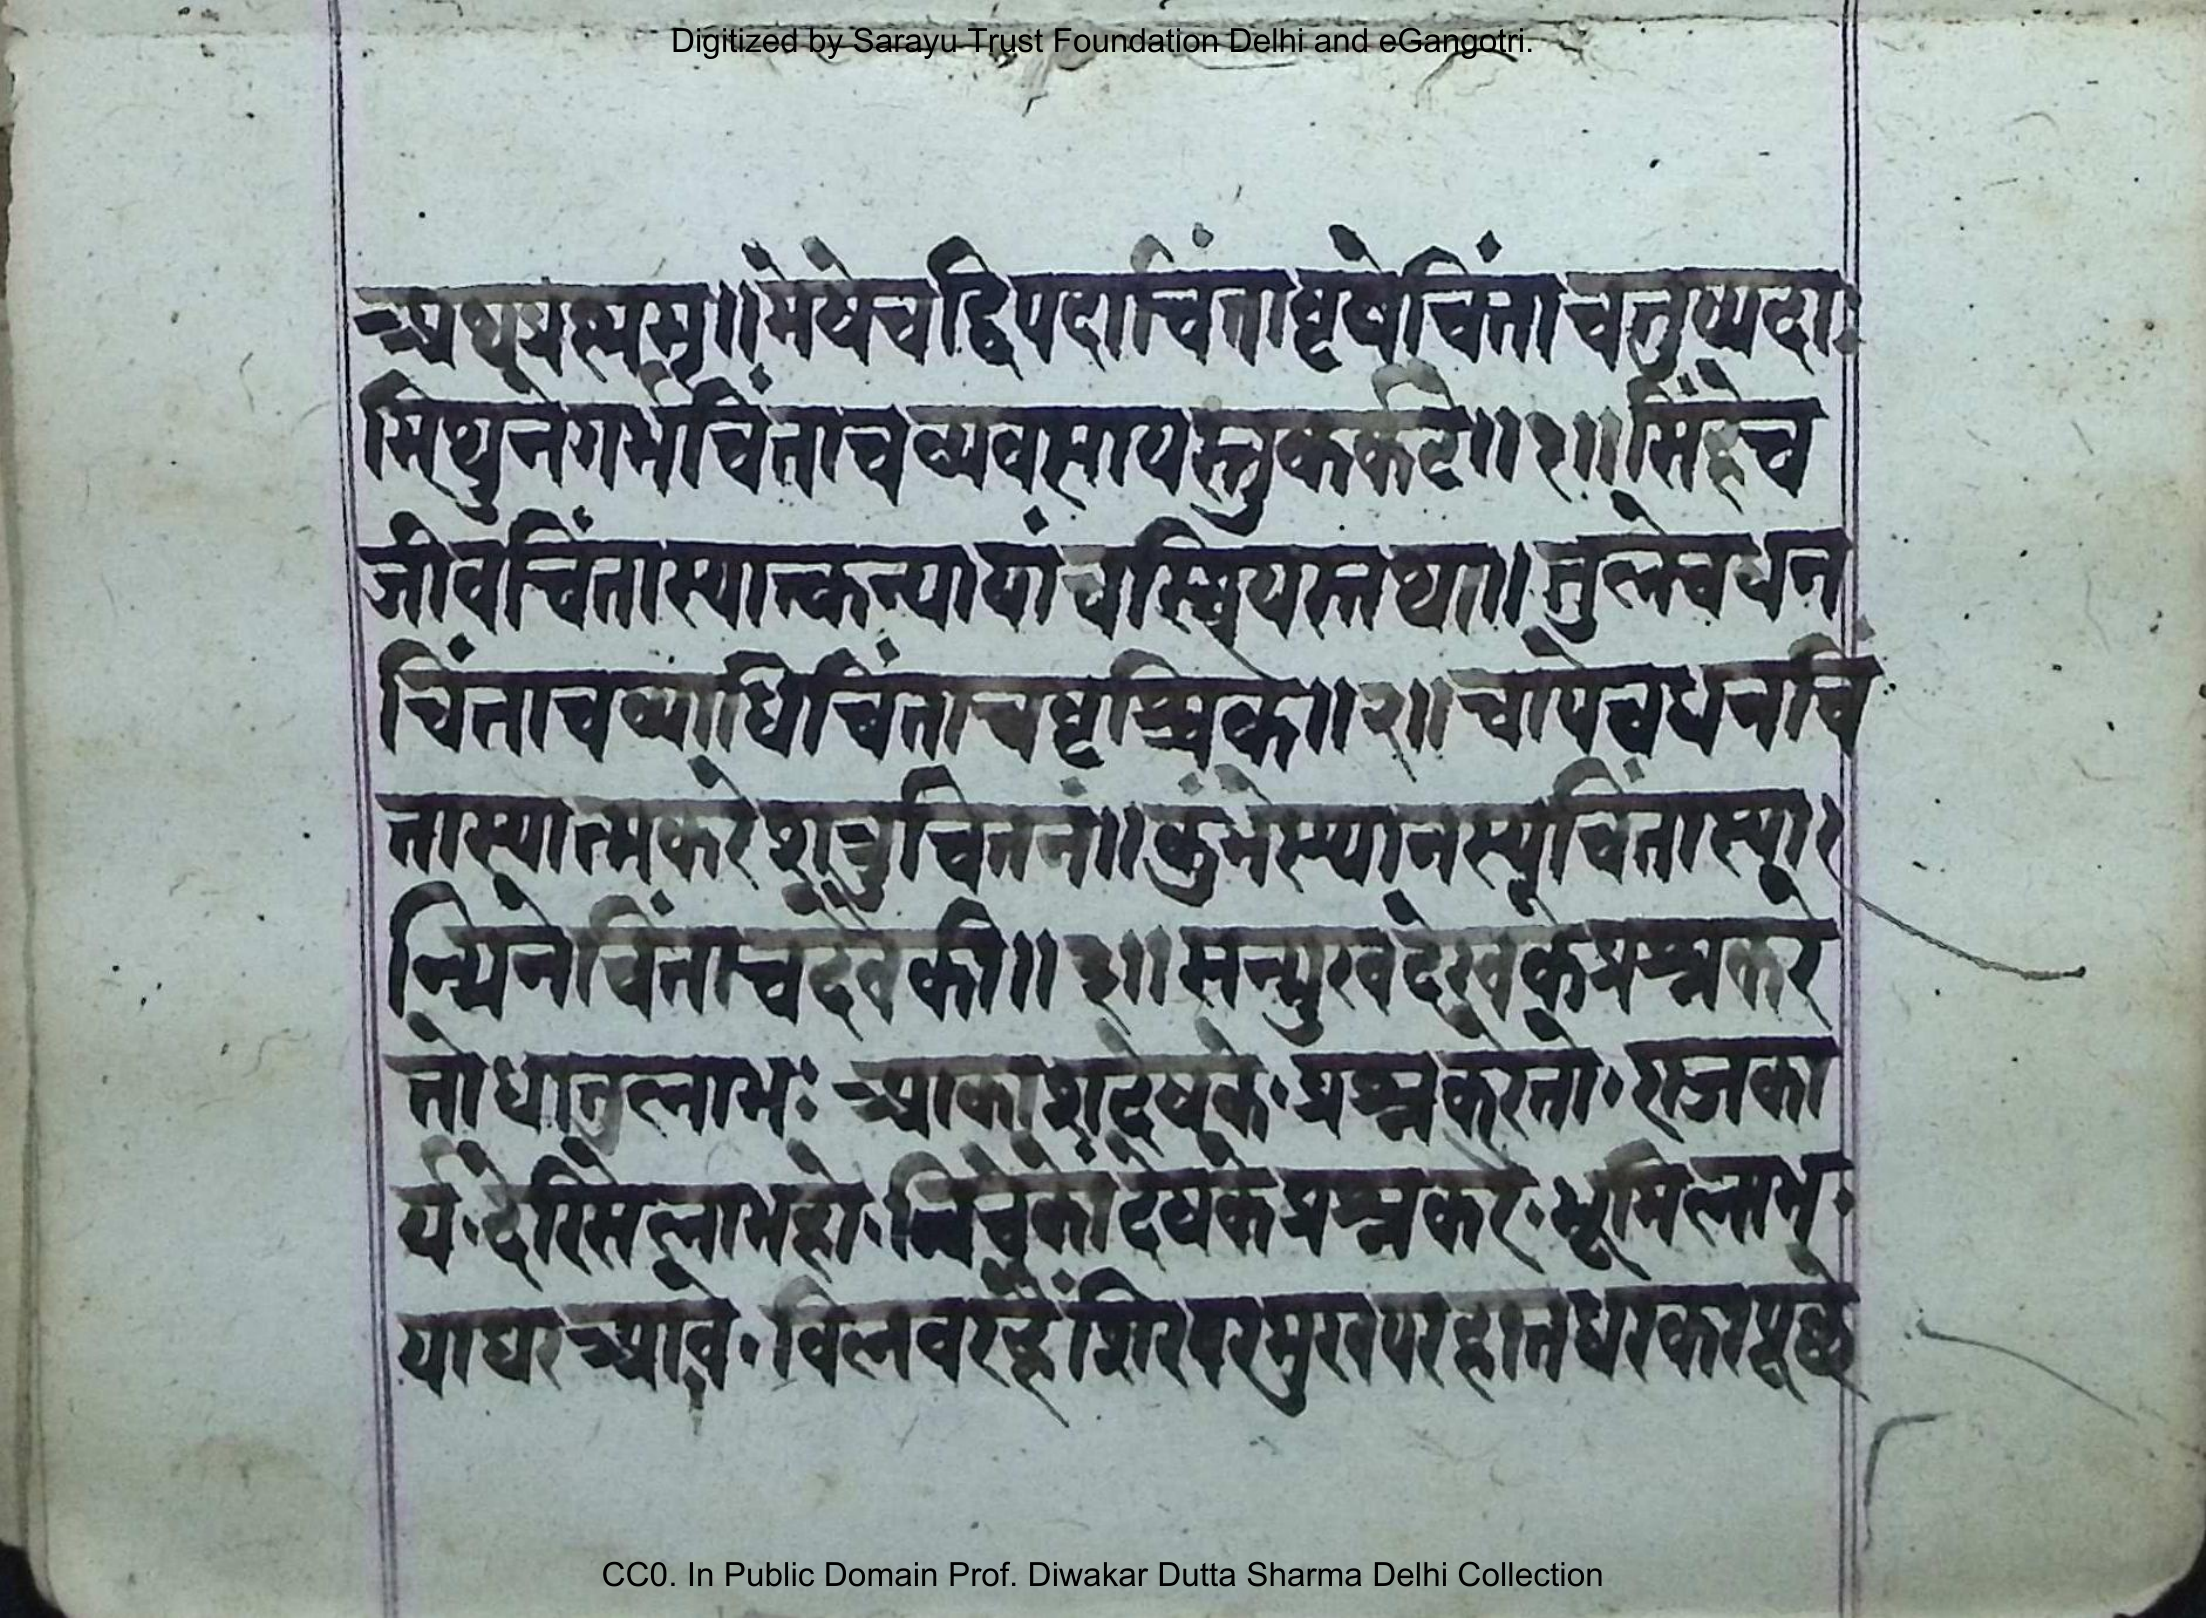 Digitized by Sarayu Trust Foundation Delhi and eGangotri.
॥मेषेचद्विपदाचिंतावृषेचिंताचतुष्पदाः
मिथुनेगर्भचिंताचव्यवसायस्तुकर्कटे॥१॥सिंहेच
जीवचिंतास्यात्कन्यायांचस्त्रियस्तथा॥तुलेचधन
चिंताचव्याधिचिंताचवृश्चिके॥२॥चापेचधनचिं
तास्यात्मकरेशत्रुचिंतनं॥कुंभेस्थानस्यचिंतास्या
न्मिनेचिंताचदैवकी॥३॥सन्मुखदेखकेप्रश्नकरे
तोधातुलाभः आकाशदेषके·प्रश्नकरेतो·राजका
र्य·देरिसेलाभहो·निचेकोंदेषकेप्रश्नकरे·भूमिलाभ·
याघरआवे·विलवरहैंशिरपरमुखपरहातधरकरपूछे
CC0. In Public Domain Prof. Diwakar Dutta Sharma Delhi Collection